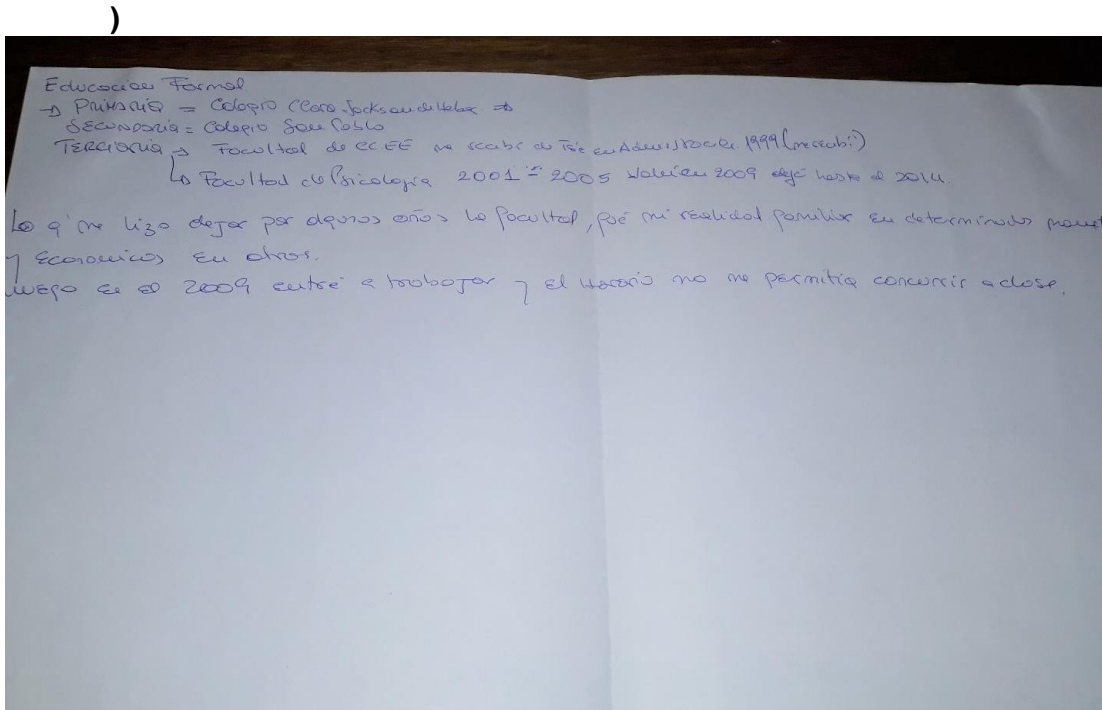 )
Educacion Formal
→ PRIMARIA = Colegio Clara Jackson de Heber →
SECUNDARIA = Colegio San Pablo
TERCIARIA → Facultad de CC.EE me recibí de Téc en Administración 1999 (me recibí)
↳ Facultad de Psicología 2001 - 2005 Volví en 2009 dejé hasta el 2014.
Lo q' me hizo dejar por algunos años la facultad, fué mi realidad familiar en determinados
y económicos en otros.
Luego en el 2009 entré a trabajar y el Horario no me permitía concurrir a clase.